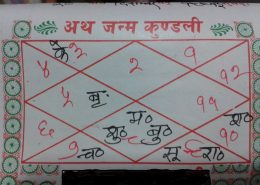 अथ जन्म कुण्डली
के ३ २ १
४ १२
५ बृः ११
म० श०
६ शु० ८ बु० १०
७ च० सू ९ रा०